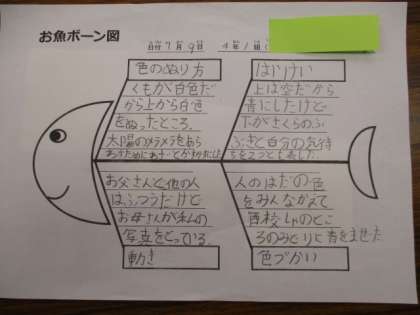 お魚ボーン図
時7月9日 4年1組
色のぬり方
くもが白色だ
から上から白色
をぬったところ。
太陽のメラメラをあら
はいけい
上は空だから
青にしたけど
下がさくらのふ
ぶきと自分の気持
ちを2つとも表した
お父さんと他の人
はふつうだけど
お母さんが私の
写真をとっている。
動き
人のはだの色
をみんなかえて
ろのみどりに青をませた
色づかい